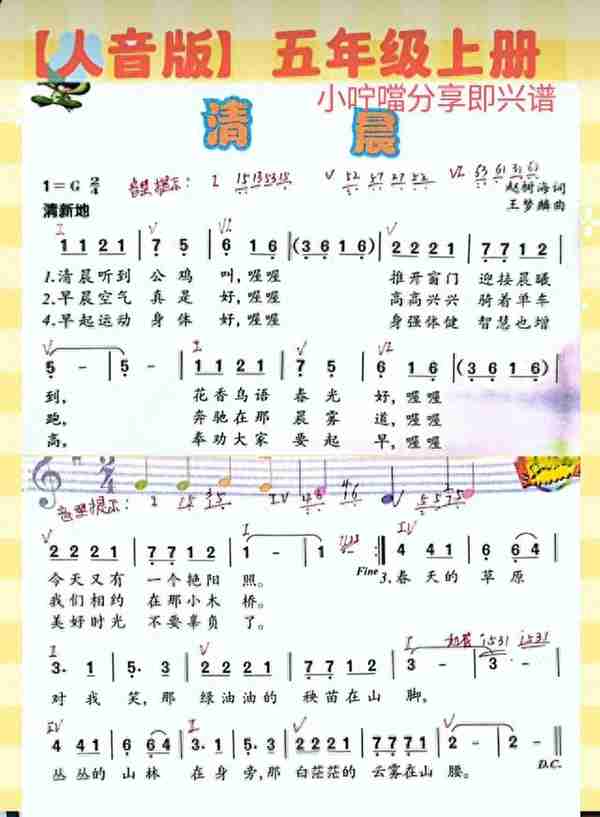 【人音版】 五年级上册
小咛噹分享即兴谱
清 晨
1=G 2/4 音型提示: I 1513 5315 V 52 57 27 52 VI 63 61 31 63
赵树海词
清新地 王梦麟曲
I V VI V
1 1 2 1 | 7 5 | 6 1 6 | (3 6 1 6) | 2 2 2 1 | 7 7 1 2 |
1.清晨听到 公鸡 叫,喔喔 推开窗门 迎接晨曦
2.早晨空气 真是 好,喔喔 高高兴兴 骑着单车
4.早起运动 身体 好,喔喔 身强体健 智慧也增
V I V VI
5 - | 5 - | 1 1 2 1 | 7 5 | 6 1 6 | (3 6 1 6) |
到, 花香鸟语 春光 好,喔喔
跑, 奔驰在那 晨雾 道,喔喔
高。 奉劝大家 要起 早,喔喔
2/4
音型提示: I 15 IV 46 46 V 55
V I IV
2 2 2 1 | 7 7 1 2 | 1 - | 1 :| 4 4 1 | 6 6 4 |
今天又有 一个艳阳 照。 Fine 3.春天的 草原
我们相约 在那小木 桥。
美好时光 不要辜负 了。
I V I 1531 1531
3. 1 | 5. 3 | 2 2 2 1 | 7 7 1 2 | 3 - | 3 - |
对我 笑,那 绿油油的 秧苗在山 脚。
IV I V V
4 4 1 | 6 6 4 | 3. 1 | 5. 3 | 2 2 2 1 | 7 7 7 1 | 2 - | 2 - |
丛丛的 山林 在身 旁,那 白茫茫的 云雾在山 腰。 D.C.